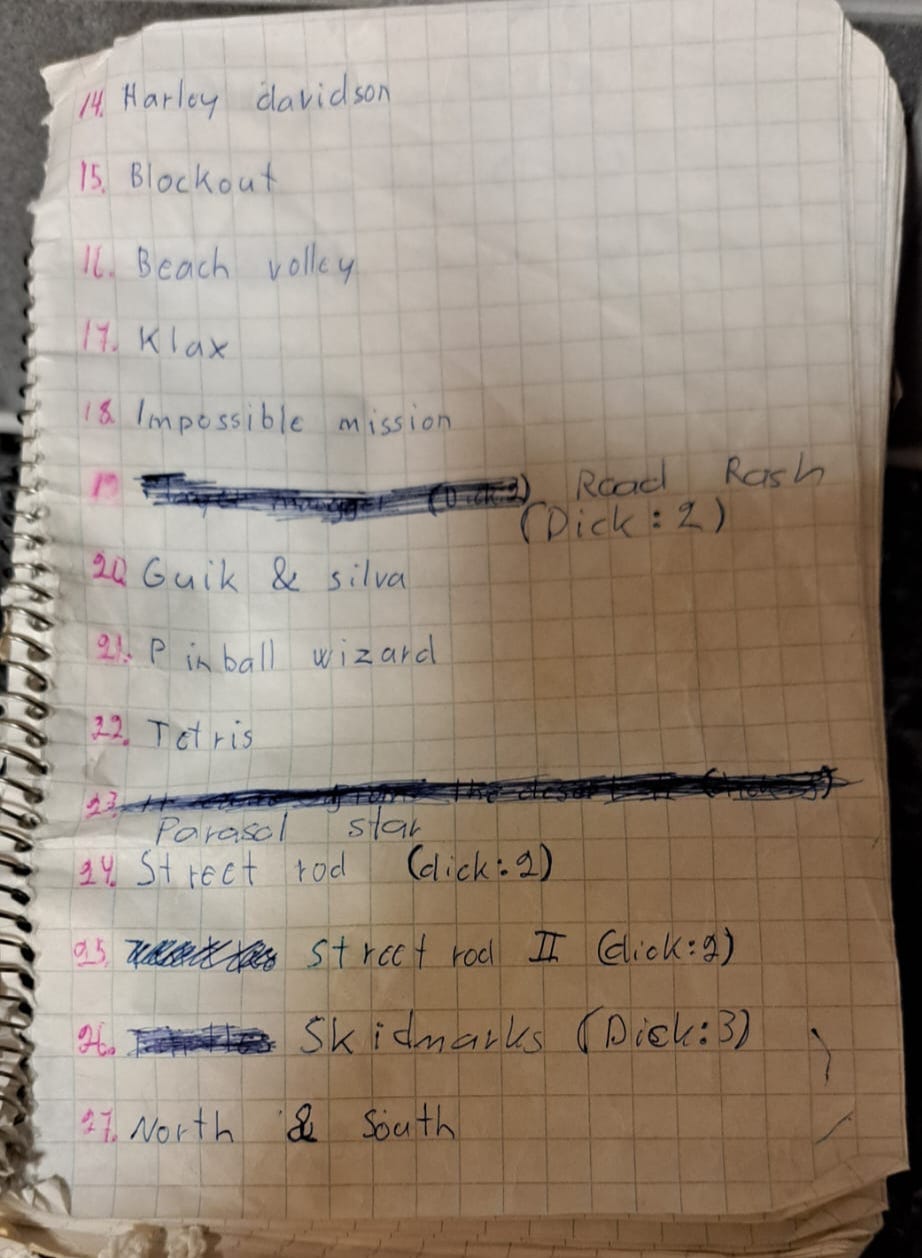 14. Harley davidson
15. Blockout
16. Beach volley
17. Klax
18. Impossible mission
19 Road Rash
(Dick:2)
20. Guik & silva
21. Pinball wizard
22. Tetris
23.
Parasol star
24. Street rod (dick:2)
25. Street rod II (dick:2)
26. Skidmarks (Dick:3)
27. North & South